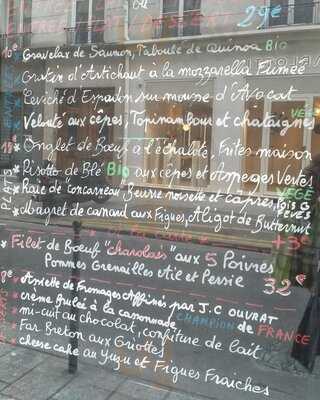 ou
29€
10e * Gravelax de Saumon, Taboulé de Quinoa BIO
* Gratin d'Artichaut à la mozzarella Fumée
* Ceviché d'Espadon sur mousse d'Avocat
* Velouté aux cèpes, Topinambour et chataignes VÉGÉ
19e * Onglet de Bœuf à l'échalote, Frites maison
* Risotto de Blé Bio aux cèpes et Asperges Vertes VÉGÉ
* Raie de Concarneau Beurre noisette et câpres, Pois et FÈVES
* Magret de canard aux Figues, Aligot de Butternut
+3€
* Filet de Bœuf "charolais" aux 5 Poivres
Pommes Grenailles Ail et Persil 32€
8e * Assiette de Fromages Affinés par J.C OUVRAT
CHAMPION de FRANCE
* crème Brulée à la cassonade
* mi-cuit au chocolat, confiture de lait
* Far Breton aux Griottes
* cheese cake au Yuzu et Figues Fraiches
PLATS